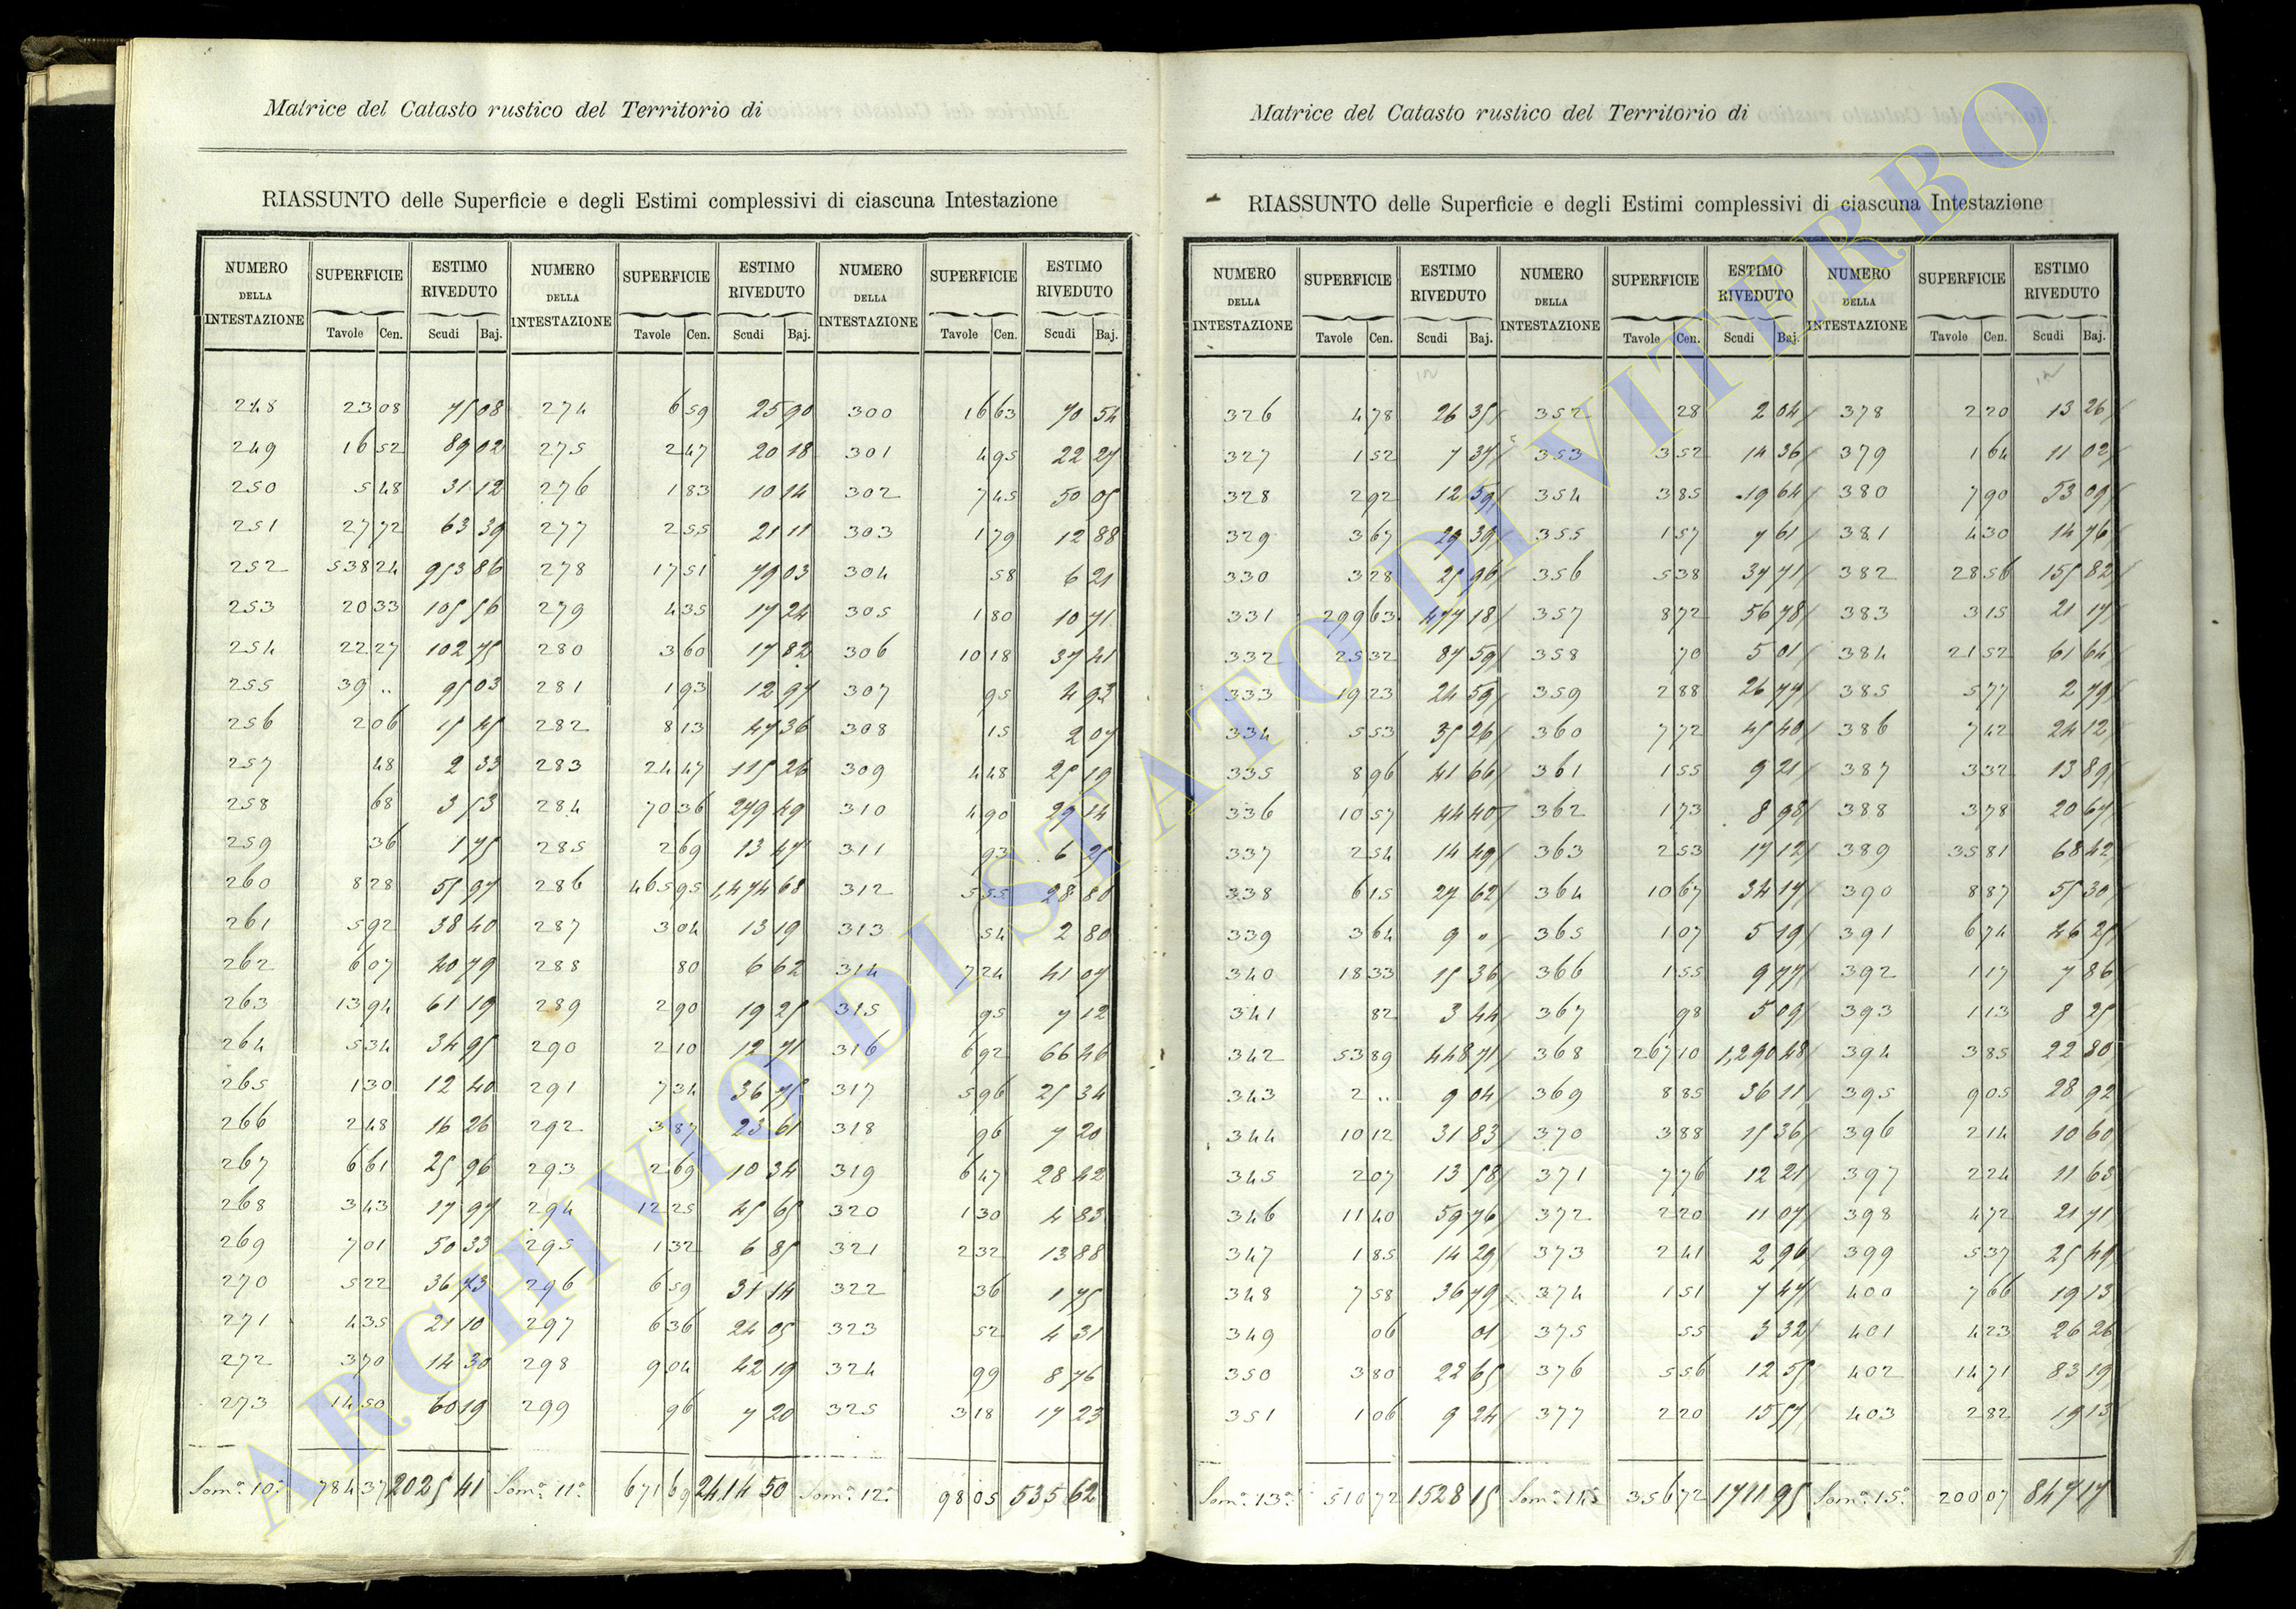 Matrice del Catasto rustico del Territorio di
RIASSUNTO delle Superficie e degli Estimi complessivi di ciascuna Intestazione
NUMERO DELLA INTESTAZIONE SUPERFICIE ESTIMO RIVEDUTO NUMERO DELLA INTESTAZIONE SUPERFICIE ESTIMO RIVEDUTO NUMERO DELLA INTESTAZIONE SUPERFICIE ESTIMO RIVEDUTO
Tavole Cen. Scudi Baj. Tavole Cen. Scudi Baj. Tavole Cen. Scudi Baj.
248 23 08 75 08 274 6 59 25 90 300 16 63 70 54
249 16 52 89 02 275 2 47 20 18 301 4 95 22 27
250 5 48 31 12 276 1 83 10 14 302 7 45 50 05
251 27 72 63 39 277 2 55 21 11 303 1 79 12 88
252 538 24 953 86 278 17 51 79 03 304 58 6 21
253 20 33 105 56 279 4 35 17 24 305 1 80 10 71
254 22 27 102 75 280 3 60 17 82 306 10 18 37 41
255 39 .. 95 03 281 1 93 12 97 307 95 4 93
256 2 06 15 45 282 8 13 47 36 308 15 2 07
257 48 2 33 283 24 47 115 26 309 4 48 25 19
258 68 3 53 284 70 36 279 49 310 4 90 29 14
259 36 1 75 285 2 69 13 47 311 93 6 25
260 8 28 55 97 286 465 95 1,474 68 312 5 55 28 80
261 5 92 38 40 287 3 04 13 19 313 54 2 80
262 6 07 40 79 288 80 6 62 314 7 24 41 07
263 13 94 61 19 289 2 90 19 25 315 95 7 12
264 5 34 34 95 290 2 10 12 71 316 6 92 66 46
265 1 30 12 40 291 7 34 36 75 317 5 96 25 34
266 2 48 16 26 292 3 87 23 61 318 96 7 20
267 6 61 25 96 293 2 69 10 34 319 6 47 28 42
268 3 43 17 97 294 12 25 45 65 320 1 30 4 83
269 7 01 50 33 295 1 32 6 85 321 2 32 13 88
270 5 22 36 73 296 6 59 31 14 322 36 1 75
271 4 35 21 10 297 6 36 24 05 323 52 4 31
272 3 70 14 30 298 9 04 42 19 324 99 8 76
273 14 50 60 19 299 96 7 20 325 3 18 17 23
Som.ª 10ª 784 37 2025 41 Som.ª 11ª 671 69 2414 50 Som.ª 12ª 98 05 535 62
Matrice del Catasto rustico del Territorio di
RIASSUNTO delle Superficie e degli Estimi complessivi di ciascuna Intestazione
NUMERO DELLA INTESTAZIONE SUPERFICIE ESTIMO RIVEDUTO NUMERO DELLA INTESTAZIONE SUPERFICIE ESTIMO RIVEDUTO NUMERO DELLA INTESTAZIONE SUPERFICIE ESTIMO RIVEDUTO
Tavole Cen. Scudi Baj. Tavole Cen. Scudi Baj. Tavole Cen. Scudi Baj.
326 4 78 26 35 352 28 2 04 378 2 20 13 26
327 1 52 7 37 353 3 52 14 36 379 1 64 11 02
328 2 92 12 59 354 3 85 19 64 380 7 90 53 09
329 3 67 29 39 355 1 57 7 61 381 4 30 14 76
330 3 28 25 96 356 5 38 37 71 382 28 56 155 82
331 299 63 477 18 357 8 72 56 78 383 3 15 21 17
332 25 32 87 59 358 70 5 01 384 21 52 61 64
333 19 23 24 59 359 2 88 26 77 385 5 77 2 79
334 5 53 35 26 360 7 72 45 40 386 7 42 24 12
335 8 96 41 66 361 1 55 9 21 387 3 32 13 89
336 10 57 44 40 362 1 73 8 98 388 3 78 20 67
337 2 54 14 49 363 2 53 17 12 389 35 81 68 42
338 6 15 27 62 364 10 67 34 17 390 8 87 55 30
339 3 64 9 " 365 1 07 5 19 391 6 74 46 25
340 18 33 15 36 366 1 55 9 77 392 1 17 7 86
341 82 3 44 367 98 5 09 393 1 13 8 25
342 53 89 448 71 368 267 10 1,290 48 394 3 85 22 80
343 2 .. 9 04 369 8 85 36 11 395 9 05 28 92
344 10 12 31 83 370 3 88 15 36 396 2 14 10 60
345 2 07 13 58 371 7 76 12 21 397 2 24 11 63
346 11 40 59 76 372 2 20 11 07 398 4 72 21 71
347 1 85 14 29 373 2 41 2 96 399 5 37 25 49
348 7 58 36 79 374 1 51 7 47 400 7 66 19 13
349 06 01 375 55 3 32 401 4 23 26 26
350 3 80 22 65 376 5 56 12 55 402 14 71 83 19
351 1 06 9 24 377 2 20 15 57 403 2 82 19 13
Som.ª 13ª 510 72 1528 15 Som.ª 14ª 356 72 1711 95 Som.ª 15ª 200 07 847 17
ARCHIVIO DI STATO DI VITERBO